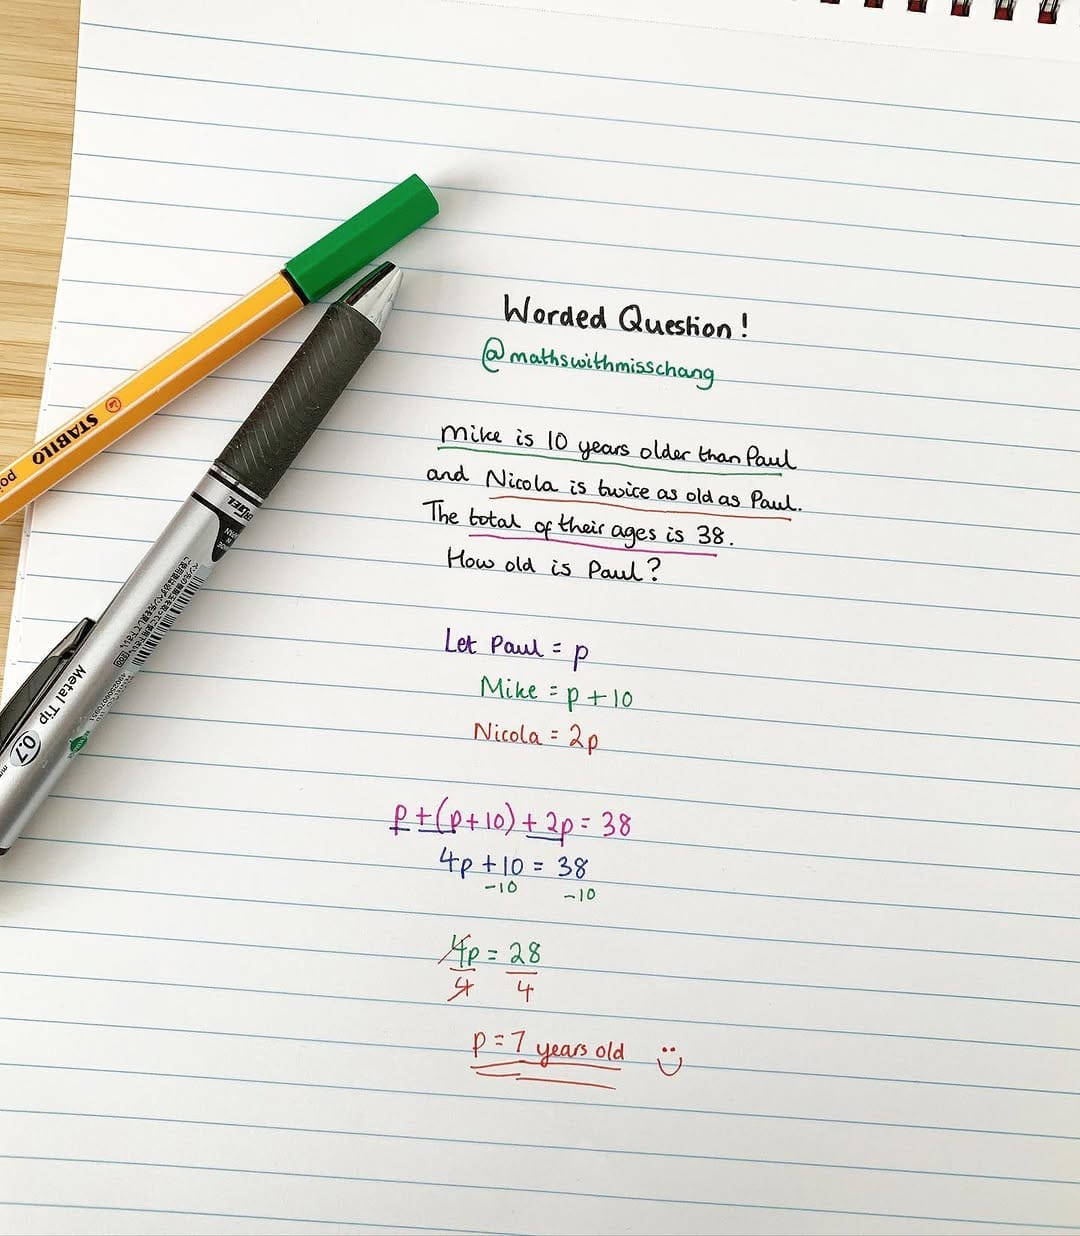 Worded Question!
@mathswithmisschang
Mike is 10 years older than Paul
and Nicola is twice as old as Paul.
The total of their ages is 38.
How old is Paul?
Let Paul = p
Mike = p + 10
Nicola = 2p
p + (p+10) + 2p = 38
4p + 10 = 38
-10 -10
4p = 28
4 4
p = 7 years old
STABILO
Metal Tip 0.7